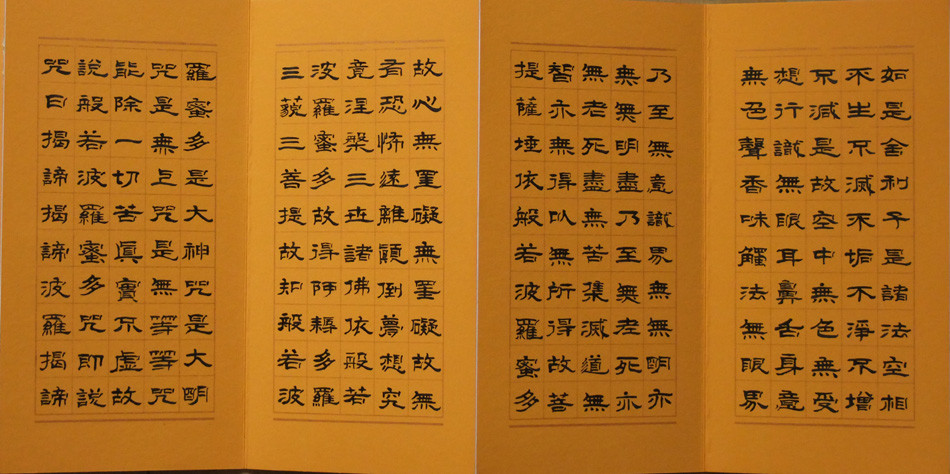 如是舍利子是諸法空相
不生不滅不垢不淨不增
不減是故空中無色無受
想行識無眼耳鼻舌身意
無色聲香味觸法無眼界
乃至無意識界無無明亦
無無明盡乃至無老死亦
無老死盡無苦集滅道無
智亦無得以無所得故菩
提薩埵依般若波羅蜜多
故心無罣礙無罣礙故無
有恐怖遠離顛倒夢想究
竟涅槃三世諸佛依般若
波羅蜜多故得阿耨多羅
三藐三菩提故知般若波
羅蜜多是大神咒是大明
咒是無上咒是無等等咒
能除一切苦眞實不虛故
說般若波羅蜜多咒即說
咒曰揭諦揭諦波羅揭諦